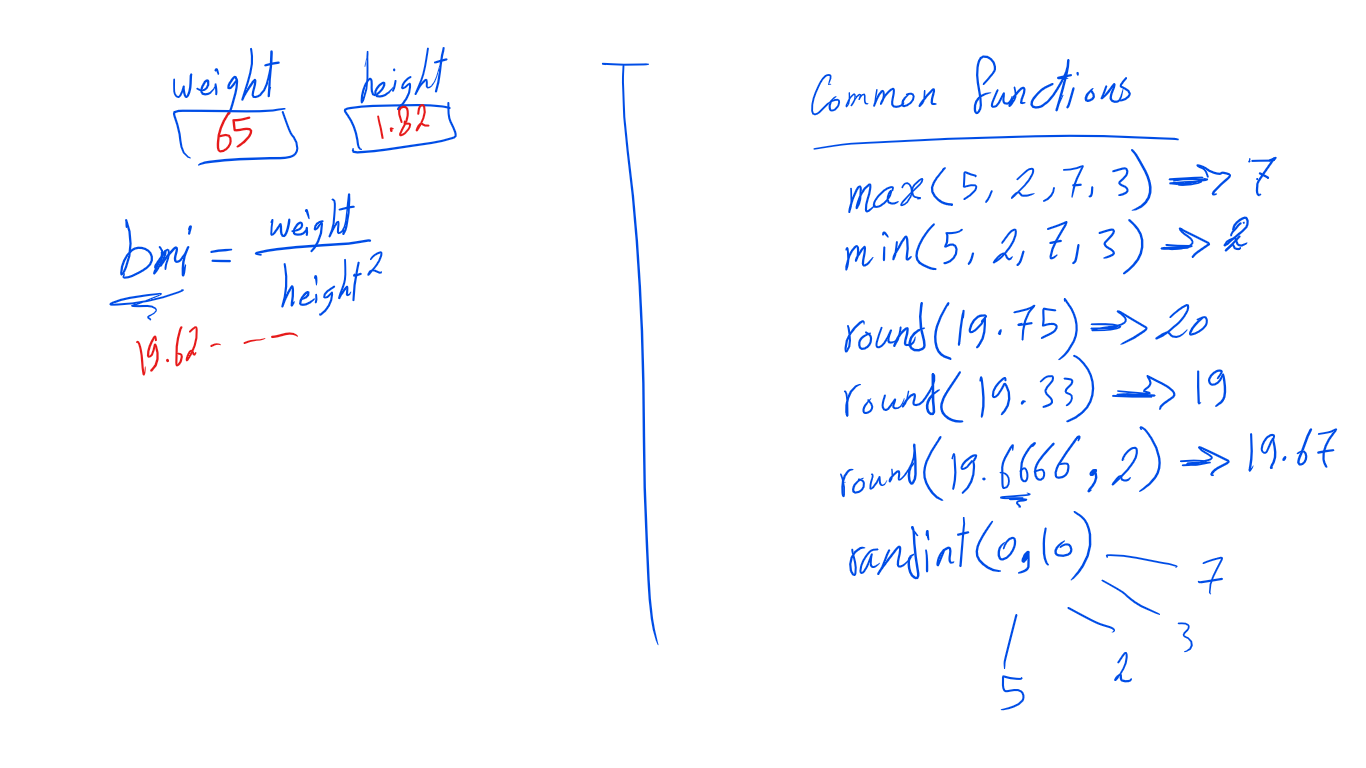 weight height
65 1.82
bmi = weight
height²
19.62 - - -
Common functions
max(5, 2, 7, 3) => 7
min(5, 2, 7, 3) => 2
round(19.75) => 20
round(19.33) => 19
round(19.6666, 2) => 19.67
randint(0,10)
7
3
2
5